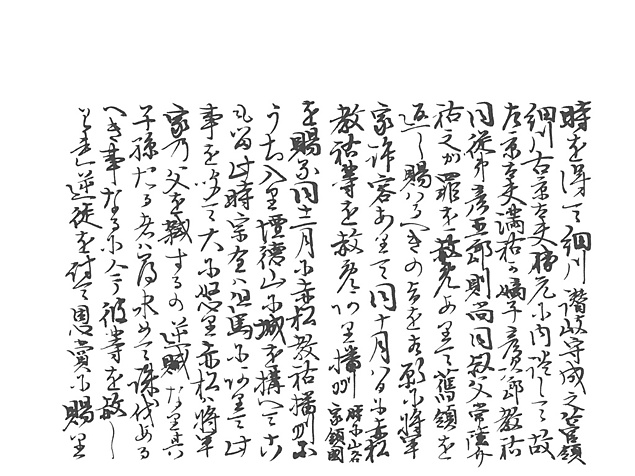 時を得て細川讃岐守成之管領
細川右京大夫勝元に内談して故
左京大夫満祐の嫡子彦次郎教祐
同従弟彦五郎則尚同叔父常陸介
祐之か罪を赦免ありて舊領を
返し賜はるへきの旨を願ふ将軍
家許容ありて同十一月八日に赤松
教祐等を赦免ありて播州 時に山名家領国
を賜ふ同十二月に赤松教祐播州に
うち入り壇徳山に城を構へて
時宗全は但馬にありて此
事を聞て大に怒り赤松は将軍
家の父を弑するの逆賊なり其
子孫たる者は尋求めて誅伐ある
へき事なるに今彼等を赦し
逆徒を討て恩賞に賜り